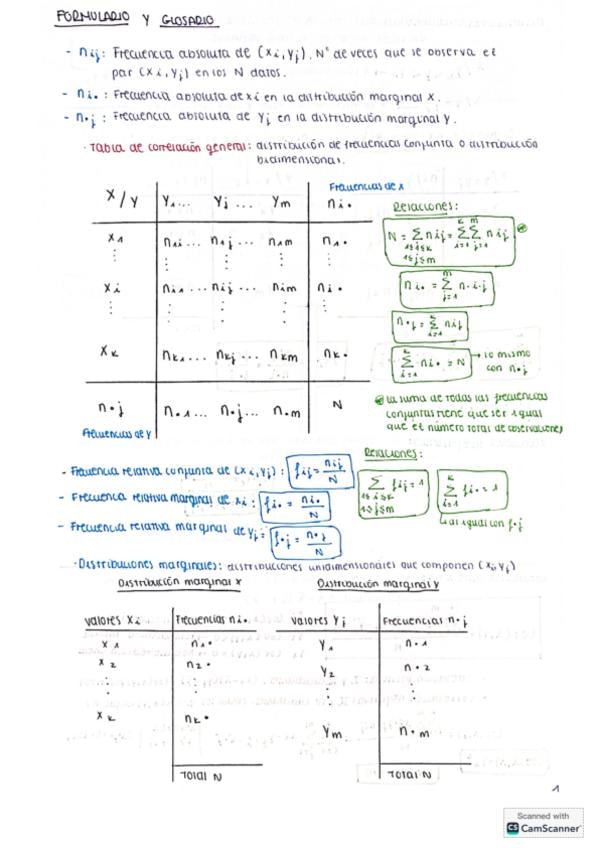 FORMULARIO Y GLOSARIO
- nij: Frecuencia absoluta de (xi, yj). Nº de veces que se observa el
par (xi, yj) en los N datos.
- ni• : Frecuencia absoluta de xi en la distribución marginal X.
- n•j : Frecuencia absoluta de yj en la distribución marginal Y.
· Tabla de correlación general: distribución de frecuencias conjunta o distribución
bidimensional.
Frecuencias de X
X/Y y1... yj ... ym ni•
x1 n11 ... n1j ... n1m n1•
⋮ ⋮ ⋮ ⋮ ⋮
xi ni1 ... nij ... nim ni•
⋮ ⋮ ⋮ ⋮ ⋮
xk nk1 ... nkj ... nkm nk•
n•j n•1 ... n•j ... n•m N
Frecuencias de Y
Relaciones:
N = Σ nij = Σ Σ nij
1≤i≤k i=1 j=1
1≤j≤m
k m
ni• = Σ n·i·j
m
j=1
n•j = Σ nij
k
i=1
Σ ni• = N → lo mismo
con n•j
k
i=1
la suma de todas las frecuencias
conjuntas tiene que ser igual
que el número total de observaciones
- Frecuencia relativa conjunta de (xi, yj) : fij = nij/N
- Frecuencia relativa marginal de xi : fi• = ni•/N
- Frecuencia relativa marginal de yj = f•j = n•j/N
Relaciones:
Σ fij = 1
1≤i≤k
1≤j≤m
Σ fi• = 1
k
i=1
al igual con f•j
· Distribuciones marginales: distribuciones unidimensionales que componen (xi, yj)
Distribución marginal X Distribución marginal Y
Valores xi Frecuencias ni• Valores yj Frecuencias n•j
x1 n1• y1 n•1
x2 n2• y2 n•2
⋮ ⋮ ⋮ ⋮
xk nk• ym n•m
Total N Total N
1
Scanned with
CS CamScanner